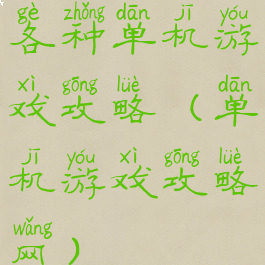 gè zhǒng dān jī yóu
各种单机游
xì gōng lüè dān
戏攻略（单
jī yóu xì gōng lüè
机游戏攻略
wǎng
网）